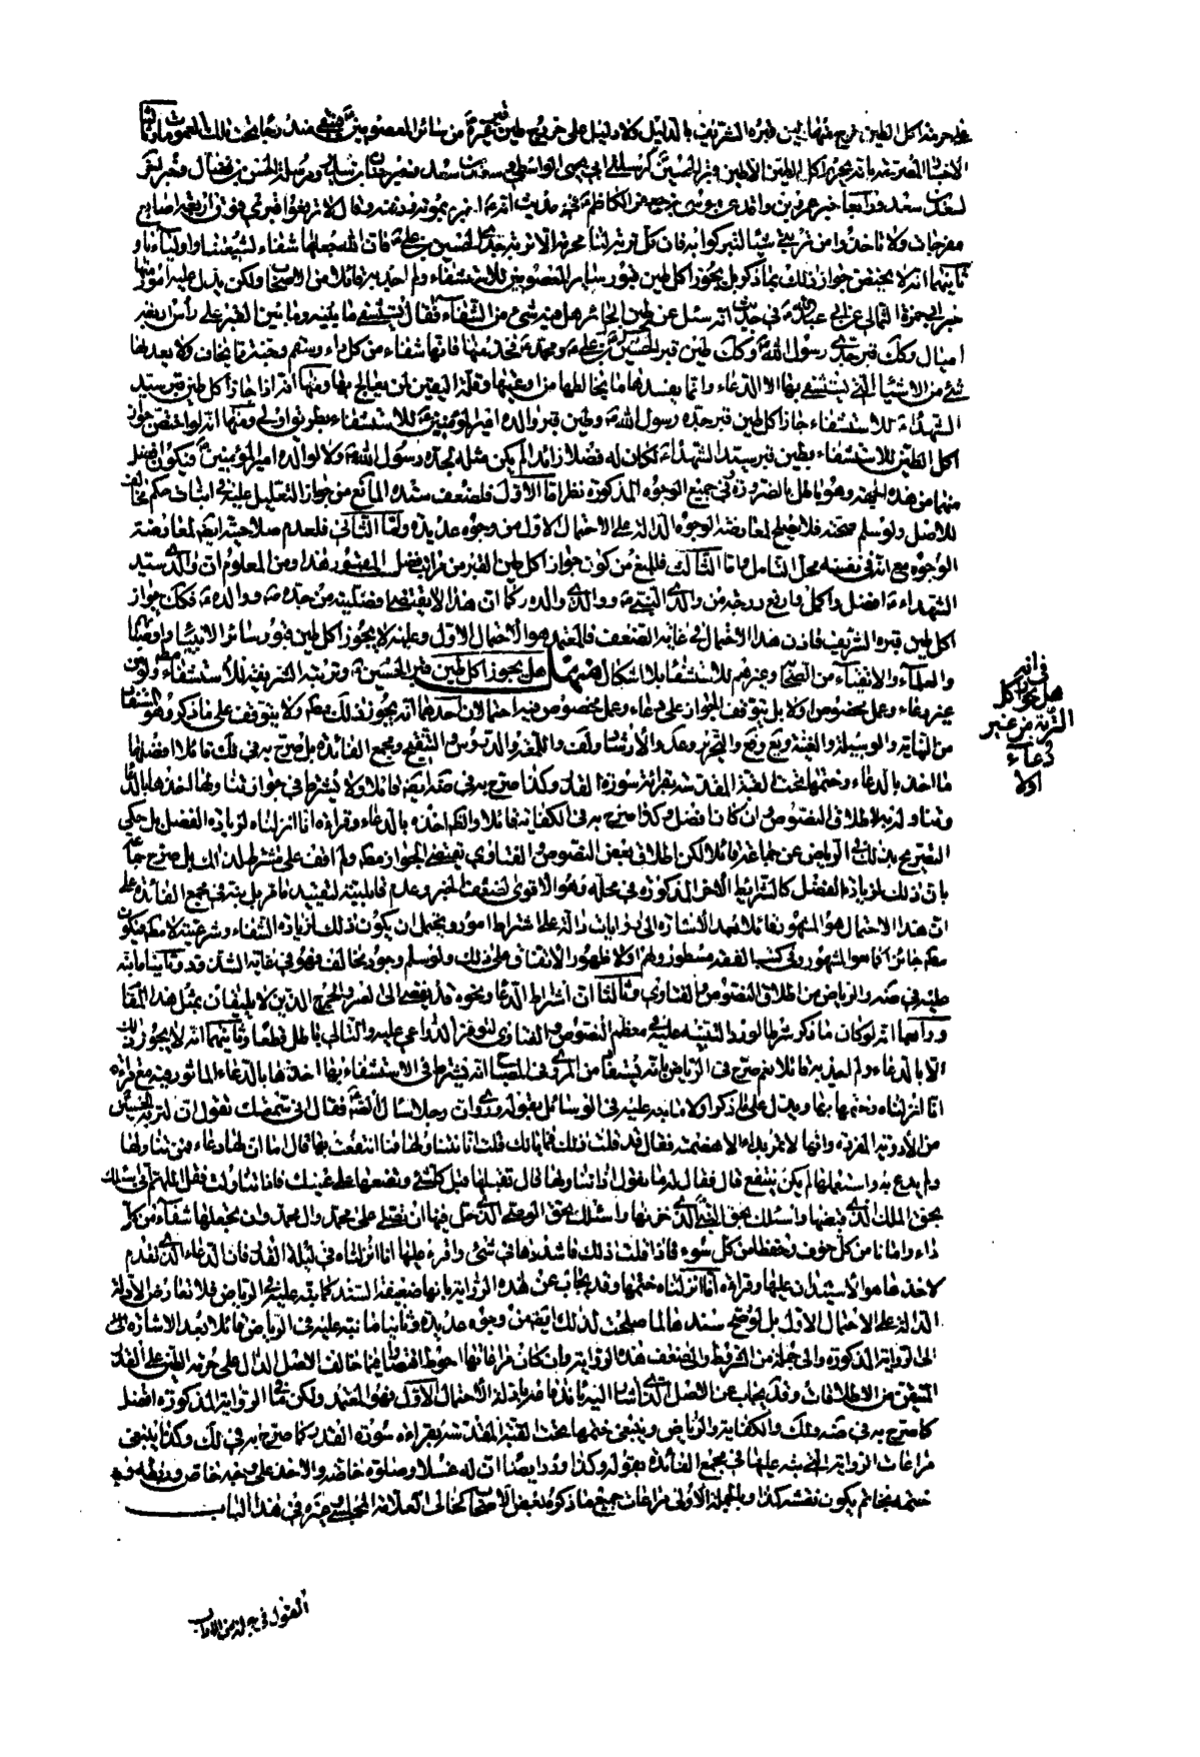 على حرمة اكل الطين خرج منها طين قبره الشريف بالدليل ولا دليل على خروج طين قبر غيره من سائر المعصومين
الاخبار المصرحة بانه يحرم اكل الطين الا طين قبر الحسين كمرسلة ابي يحيى الواسطي وخبر سعد بن سعد
لسعد بن سعد ورابعا خبر عمر بن واقد عن موسى بن جعفر الكاظم في حديث انه اخبره بموته ودفنه وقال لا ترفعوا قبري فوق اربع اصابع
مفرجات ولا تاخذوا من تربتي شيئا لتتبركوا به فان كل تربة لنا محرمة الا تربة جدي الحسين بن علي فان الله جعلها شفاء لشيعتنا واوليائنا و
ثانيهما انه لا يختص جواز ذلك بما ذكر بل يجوز اكل طين قبور سائر المعصومين للاستشفاء ولم اجد به قائلا من الاصحاب ولكن يدل عليه امور منها
خبر ابي حمزة الثمالي عن ابي عبد الله في حديث انه سئل عن طين الحائر هل فيه شيء من الشفاء فقال يستشفى ما بينه وما بين القبر على رأس اربعة
اميال وكذلك قبر جدي رسول الله وكذلك طين قبر الحسين وعلي ومحمد فخذ منها فانها شفاء من كل داء وسقم وجنة مما يخاف ولا يعدلها
شيء من الاشياء التي يستشفى بها الا الدعاء وانما يفسدها ما يخالطها من اوعيتها وقلة اليقين لمن يعالج بها ومنها انه اذا جاز اكل طين قبر سيد
الشهداء للاستشفاء جاز اكل طين قبر جده رسول الله وطين قبر والده امير المؤمنين للاستشفاء بطريق اولى ومنها انه لو اختص جواز
اكل الطين للاستشفاء بطين قبر سيد الشهداء لكان له فضلا زائدا لم يكن مثله لجده رسول الله ولا لوالده امير المؤمنين فيكون افضل
منهما من هذه الجهة وهو باطل بالضرورة وفي جميع الوجوه المذكورة نظر اما الاول فلضعف سنده المانع من جواز التعويل عليه في اثبات حكم مخالف
للاصل ولو سلم صحته فلا يصلح لمعارضة الوجوه الدالة على الاحتمال الاول من وجوه عديدة واما الثاني فلعدم صلاحيته ايضا لمعارضة
الوجوه مع انه في نفسه محل التأمل واما الثالث فللمنع من كون جواز اكل طين القبر من مراتب فضل المقبور هذا ومن المعلوم ان والدي سيد
الشهداء افضل واكمل وارفع درجة من
اكل طين قبره الشريف فاذن هذا الاحتمال في غاية الضعف فالمعتمد هو الاحتمال الاول وعليه لا يجوز اكل طين قبور سائر الانبياء والاوصياء
والعلماء والاتقياء من الصحابة وغيرهم للاستشفاء بلا اشكال هل يجوز اكل طين قبر الحسين وتربته الشريفة للاستشفاء مطلقا ولو من
غير دعاء وعمل مخصوص اولا بل يتوقف الجواز على دعاء وعمل مخصوص فيه احتمالان احدهما انه يجوز ذلك مطلقا ولا يتوقف على ما ذكر وهو
ما اخذ بالدعاء وختمها تحت القبة المقدسة بقرائة سورة القدر وكذا صرح به في ايضا قائلا ولا يشترط في جواز تناولها اخذها بالدعاء
وتناولها به لاطلاق النصوص وان كان افضل وكذا صرح به في الكفاية قائلا والظاهر اخذه بالدعاء وقراءة انا انزلناه لزيادة الفضل بل حكي
التصريح بذلك في الرياض عن جماعة قائلا لكن اطلاق بعض النصوص والفتاوي يقتضي الجواز مطلقا ولم اقف على مشترط لذلك بل صرح جماعة
بان ذلك لزيادة الفضل كالشرايط الاخر المذكورة في محله وهو الاقوى لضعف الخبر وعدم قابليته لتقييد ما مر بل ربما في مجمع الفائدة على
ان هذا الاحتمال هو المشهور قائلا بعد الاشارة الى روايات دالة على اشتراط امور ويحتمل ان يكون ذلك لزيادة الشفاء وسرعته لا مطلقا فيكون
مطلقا جائزا كما هو المشهور وفي كتب الفقه مسطور ولهم اولا ظهور الاتفاق على ذلك ولو سلم وجود مخالف فهو في غاية الشذوذ وثانيا ما نبه
عليه في ضه والرياض من اطلاق النصوص والفتاوي وثالثا ان اشتراط الدعاء ونحوه قد يفضي الى العسر والحرج الذين لا يليقان بمثل هذا المقام
ورابعا انه لو كان ما ذكر شرطا لورد التنبيه عليه في معظم النصوص والفتاوي لتوفر الدواعي عليه والتالي باطل قطعا وثانيهما انه لا يجوز ذلك
الا بالدعاء ولم اجد به قائلا نعم صرح في الرياض بانه يستفاد من المروي في المصباح انه يشترط في الاستشفاء بها اخذها بالدعاء الماثور فيه مع قراءة
انا انزلناه وختمها بها ويدل على ما ذكر اولا ما نبه عليه في الوسائل بقوله روي ان رجلا سال الصادق فقال اني سمعتك تقول ان تربة الحسين
من الادوية المفردة وانها لا تمر بداء الا هضمته فقال قد قلت ذلك فما بالك قلت انا نتناولها فما انتفعت بها قال اما ان لها دعاء فمن تناولها
ولم يدع به واستعملها لم يكن ينتفع قال فقال له ما يقول اذا تناولها قال تقبلها قبل كل شيء وتضعها على عينيك فاذا تناولت فقل اللهم اني اسئلك
بحق الملك الذي قبضها واسئلك بحق النبي الذي خزنها واسئلك بحق الوصي الذي حل فيها ان تصلي على محمد وال محمد وان تجعلها شفاء من كل
داء وامانا من كل خوف وحفظا من كل سوء فاذا قلت ذلك فاشددها في شيء واقرء عليها انا انزلناه في ليلة القدر فان الدعاء الذي تقدم
لاخذها هو الاستيذان عليها وقراءة انا انزلناه ختمها وقد يجاب عن هذه الرواية بانها ضعيفة السند كما نبه عليه في الرياض فلا تعارض الادلة
الدالة على الاحتمال الاول بل لو صح سندها لما صلحت لذلك ايضا من وجوه عديدة وثانيا ما نبه عليه في الرياض قائلا بعد الاشارة الى
الرواية المذكورة والى جملة من الشرايط والى ضعف هذه الرواية وان كان مراعاتها احوط اقتصارا فيما خالف الاصل الدال على حرمة الطين على القدر
المتيقن من الاطلاقات وقد يجاب عن الاصل الذي اشار اليه بما ذكرنا من ادلة الاحتمال الاول فهو المعتمد ولكن ما في الرواية المذكورة افضل
كما صرح به في ضه ولك والكفاية والرياض وينبغي ختمها تحت القبة المقدسة بقراءة سورة القدر كما صرح به في لك وكذا ينبغي
مراعات الرواية التي نبه عليها في مجمع الفائدة بقوله وكذا ورد ايضا ان له غسلا وصلوة خاصة والاخذ على وجه خاص وربطه و
ختمه بخاتم يكون نقشه كذا وبالجملة الاولى مراعات جميع ما ذكره بعض الاصحاب كخالي العلامة المجلسي وغيره في هذا الباب
في انه
هل يجوز اكل
التربة من غير
دعاء
اولا
القول في جملة من الاداب